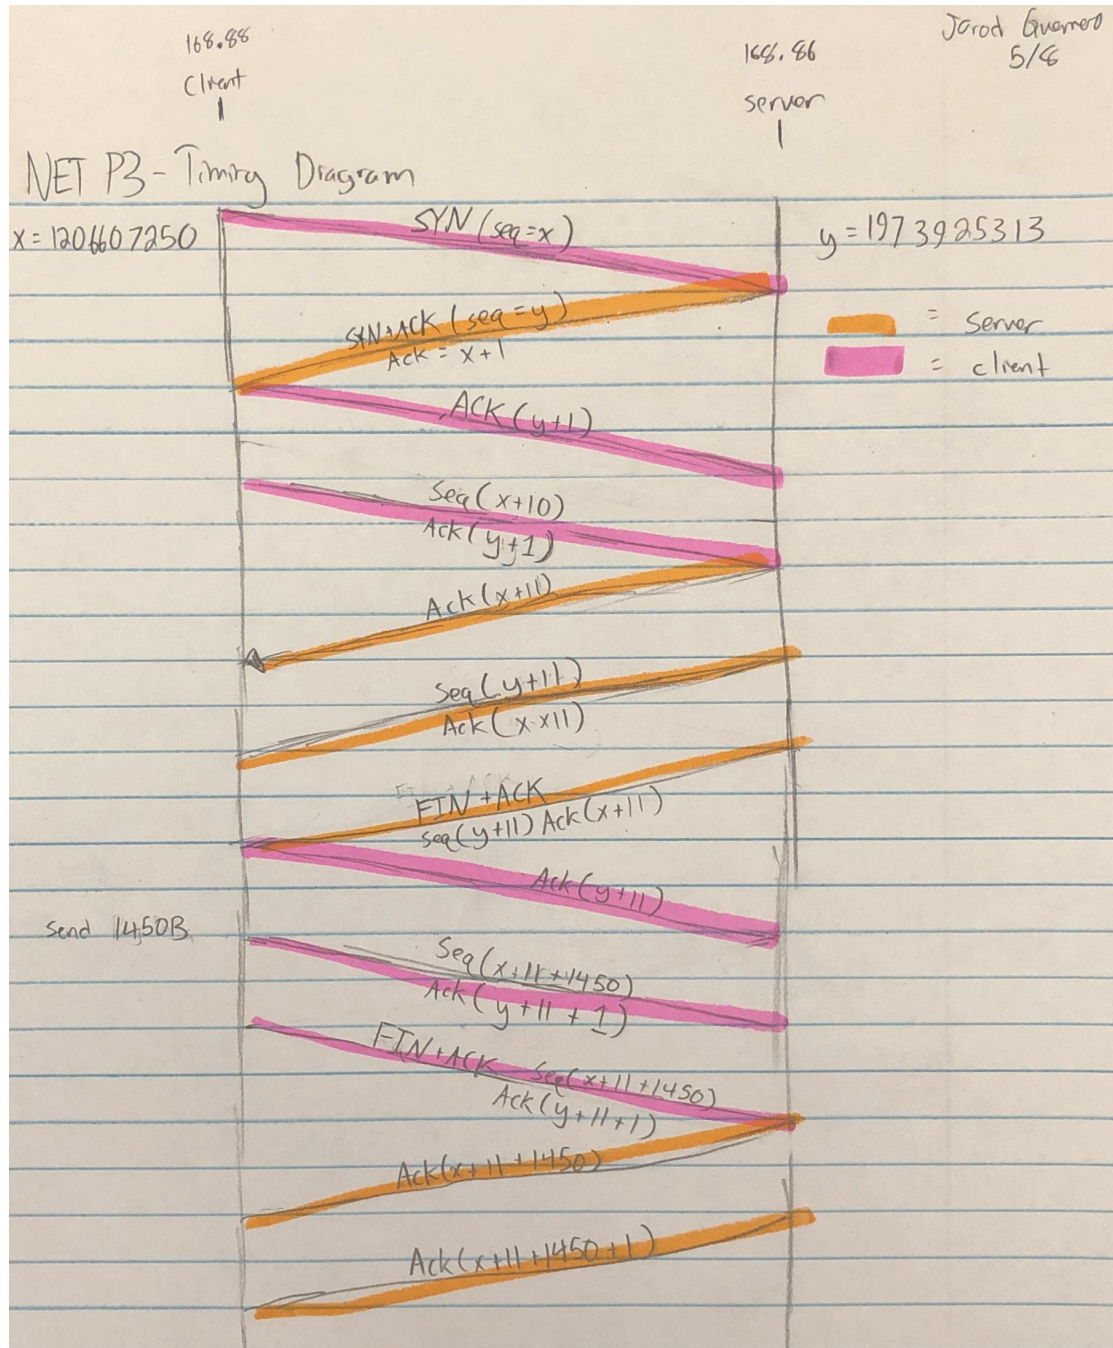 168.88
Client
168.86
server
Jarod Guerrero
5/8
NET P3 - Timing Diagram
x = 1206607250
y = 1973925313
= server
= client
SYN (seq = x)
SYN+ACK (seq = y)
Ack = x+1
ACK (y+1)
Seq (x+10)
Ack (y+1)
Ack (x+11)
Seq (y+11)
Ack (x x11)
FIN + ACK
seq (y+11) Ack (x+11)
Ack (y+11)
Send 1450B
Seq (x+11+1450)
Ack (y+11+1)
FIN+ACK Seq (x+11+1450)
Ack (y+11+1)
Ack (x+11+1450)
Ack (x+11+1450+1)